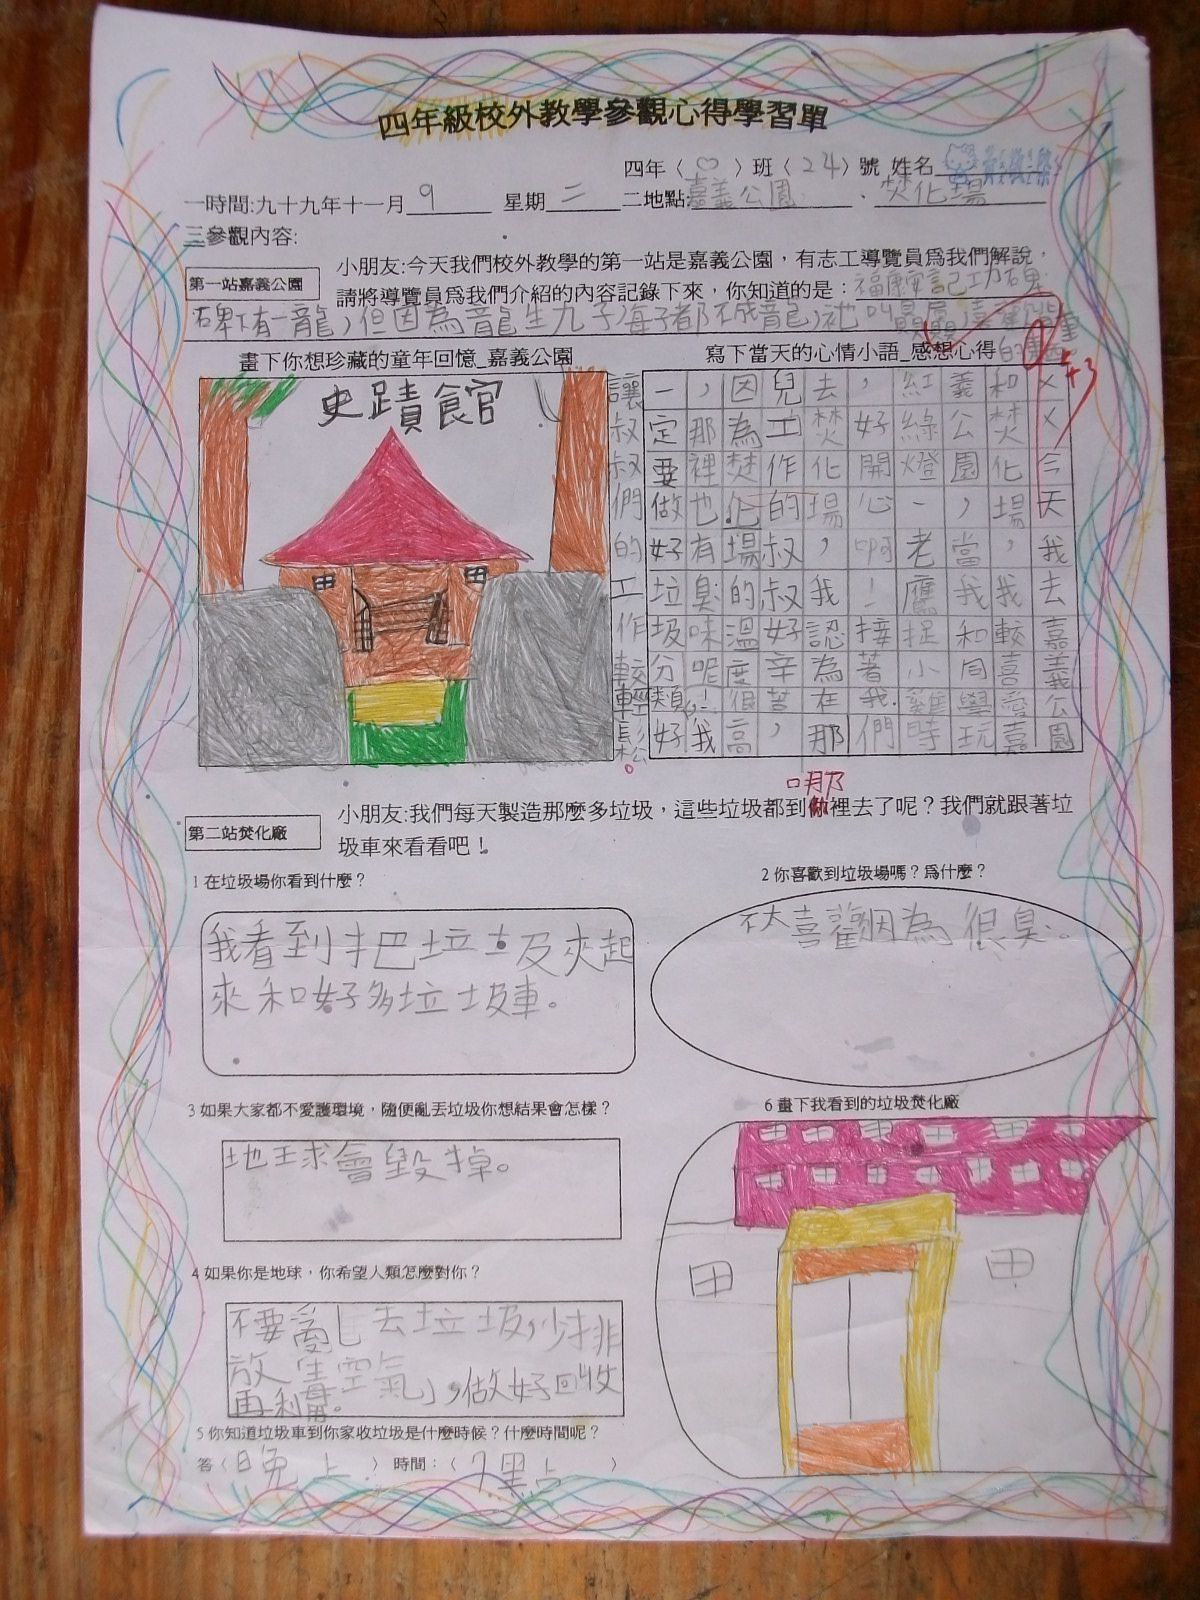 四年級校外教學參觀心得學習單
四年〈心〉班〈24〉號 姓名
一時間:九十九年十一月9 星期二 二地點:嘉義公園、焚化場
三參觀內容:
第一站嘉義公園
小朋友:今天我們校外教學的第一站是嘉義公園，有志工導覽員為我們解說，
請將導覽員為我們介紹的內容記錄下來，你知道的是：福康安記功石碑
碑下有一龍，但因為龍生九子，每子都不成龍，祂叫贔屭，喜
畫下你想珍藏的童年回憶_嘉義公園
史蹟館
寫下當天的心情小語_感想心得
+3
××今天我去嘉義公園
和焚化場，我較喜愛嘉
義公園，當我和同學玩
紅綠燈、老鷹捉小雞時
，好開心啊！接著我們
去焚化場，我認為在那
兒工作的叔叔好辛苦，
因為焚化場的溫度很高
，那裡也有臭味呢！我
一定要做好垃圾分類好
讓叔叔們的工作較輕鬆。
第二站焚化廠
小朋友:我們每天製造那麼多垃圾，這些垃圾都到哪裡去了呢？我們就跟著垃
圾車來看看吧！
1 在垃圾場你看到什麼？
我看到把垃圾夾起
來和好多垃圾車。
2 你喜歡到垃圾場嗎？為什麼？
不太喜歡因為很臭。
3 如果大家都不愛護環境，隨便亂丟垃圾你想結果會怎樣？
地球會毀掉。
4 如果你是地球，你希望人類怎麼對你？
不要亂丟垃圾，少排
放毒空氣，做好回收
再利用。
5 你知道垃圾車到你家收垃圾是什麼時候？什麼時間呢？
答〈晚上〉時間：〈7點〉
6 畫下我看到的垃圾焚化廠